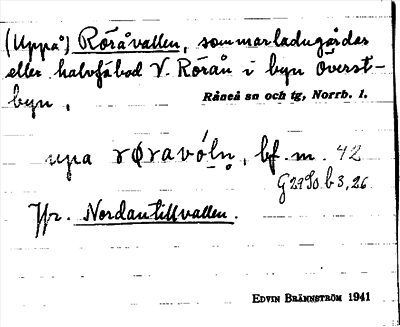 (Uppå) Röråvallen, sommarladugårdar
eller halvfäbod V. Rörån i byn Överst-
byn.
Råneå sn och tg, Norrb. l.
upa røravóln, bf. m. 42
G 2980 b 3,26
Jfr. Nordantillvallen.
EDVIN BRÄNNSTRÖM 1941